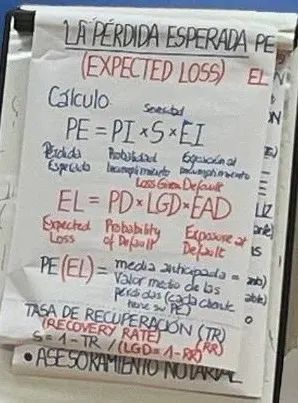 LA PÉRDIDA ESPERADA PE
(EXPECTED LOSS) EL
Cálculo
Severidad
PE = PI × S × EI
Pérdida Probabilidad Exposición al
Esperada Incumplimiento Incumplimiento
Loss Given Default
EL = PD × LGD × EAD
Expected Probability Exposure at
Loss of Default Default
PE (EL) = media anticipada =
Valor medio de las
pérdidas (cada cliente
tiene su PE)
TASA DE RECUPERACIÓN (TR)
(RECOVERY RATE) (RR)
S = 1 - TR / (LGD = 1 - RR)
• ASESORAMIENTO NOTARIAL